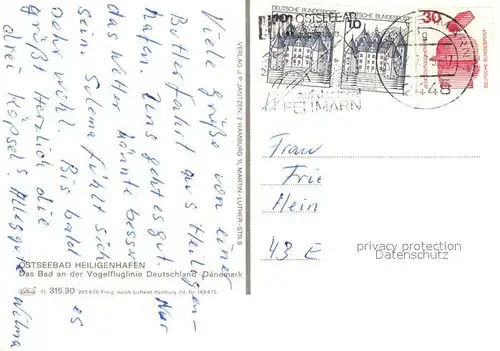 Viele Grüße von einer
Butterfahrt aus Heiligen-
hafen. Uns geht es gut. Nur
das Wetter könnte besser
sein. Selma fühlt sich
sehr wohl. Bis bald
grüßt Herzlich die
drei Köpsel's Alles gute Wilma
VERLAG J. P. JANTZEN 2 HAMBURG 11, MARTIN-LUTHER-STR. 6
OSTSEEBAD HEILIGENHAFEN
Das Bad an der Vogelfluglinie Deutschland-Dänemark
315.30 265 676 Freig. durch Luftamt Hamburg
DEUTSCHE BUNDESPOST
DEUTSCHE BUNDESPOST
10
30
DEUTSCHE BUNDESPOST
OSTSEEBAD
FEHMARN
2448
Frau
Hein
43 E
privacy protection
Datenschutz